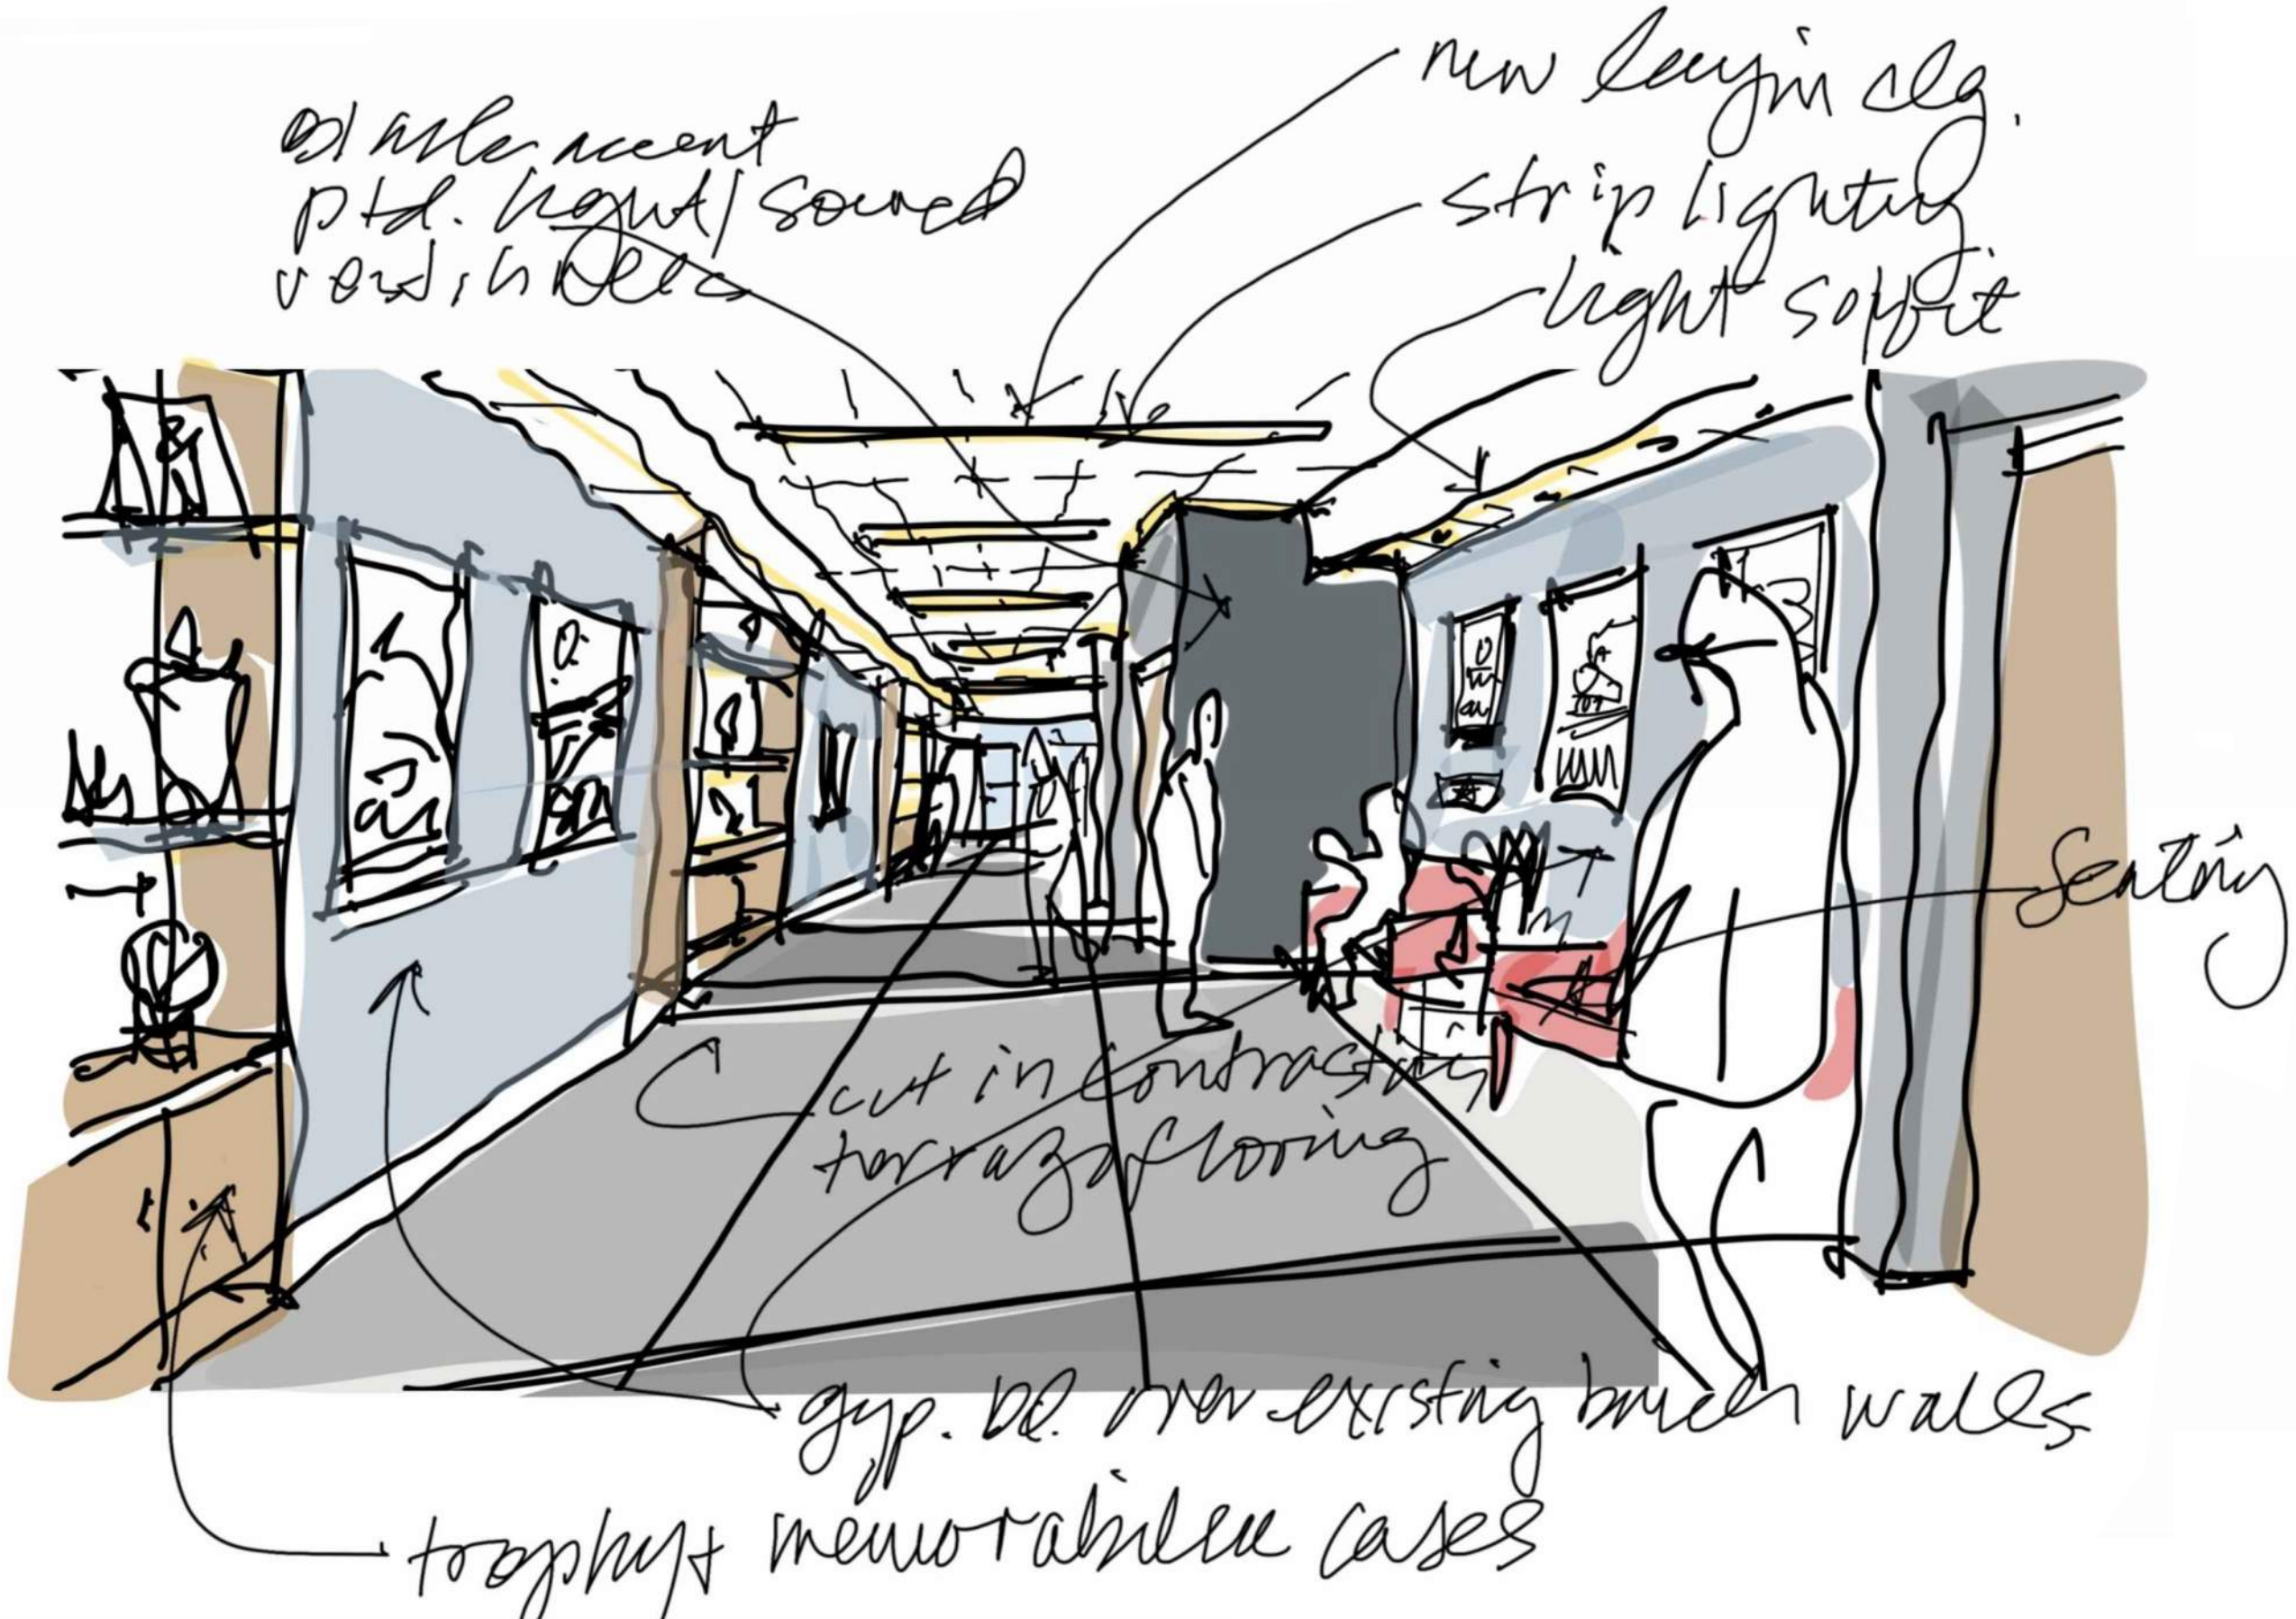 accent
ptd. light/sound
vestibule
new layin clg.
strip lighting
light soffit
seating
cut in contrasting
terrazo flooring
gyp. bd. over existing brick walls
trophy + memorabilia cases